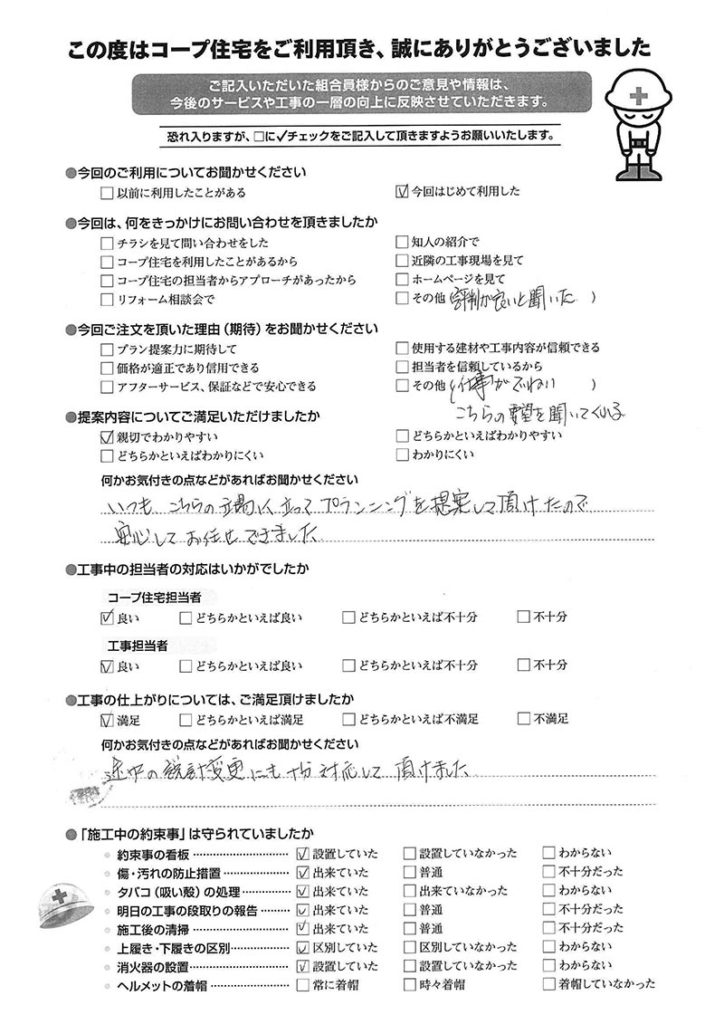 この度はコープ住宅をご利用頂き、誠にありがとうございました
ご記入いただいた組合員様からのご意見や情報は、
今後のサービスや工事の一層の向上に反映させていただきます。
恐れ入りますが、□に✓チェックをご記入して頂きますようお願いいたします。
●今回のご利用についてお聞かせください
□以前に利用したことがある ☑今回はじめて利用した
●今回は、何をきっかけにお問い合わせを頂きましたか
□チラシを見て問い合わせをした □知人の紹介で
□コープ住宅を利用したことがあるから □近隣の工事現場を見て
□コープ住宅の担当者からアプローチがあったから □ホームページを見て
□リフォーム相談会で □その他(評判が良いと聞いた)
●今回ご注文を頂いた理由(期待)をお聞かせください
□プラン提案力に期待して □使用する建材や工事内容が信頼できる
□価格が適正であり信用できる □担当者を信頼しているから
□アフターサービス、保証などで安心できる □その他(仕事がていねい)
こちらの要望を聞いてくれる
●提案内容についてご満足いただけましたか
☑親切でわかりやすい □どちらかといえばわかりやすい
□どちらかといえばわかりにくい □わかりにくい
何かお気付きの点などがあればお聞かせください
いつも こちらの立場に立ってプランニングを提案して頂けたので
安心してお任せできました
●工事中の担当者の対応はいかがでしたか
コープ住宅担当者
☑良い □どちらかといえば良い □どちらかといえば不十分 □不十分
工事担当者
☑良い □どちらかといえば良い □どちらかといえば不十分 □不十分
●工事の仕上がりについては、ご満足頂けましたか
☑満足 □どちらかといえば満足 □どちらかといえば不満足 □不満足
何かお気付きの点などがあればお聞かせください
途中の設計変更にも十分対応して頂けました
●「施工中の約束事」は守られていましたか
約束事の看板 ☑設置していた □設置していなかった □わからない
傷・汚れの防止措置 ☑出来ていた □普通 □不十分だった
タバコ(吸い殻)の処理 ☑出来ていた □出来ていなかった □わからない
明日の工事の段取りの報告 ☑出来ていた □普通 □不十分だった
施工後の清掃 ☑出来ていた □普通 □不十分だった
上履き・下履きの区別 ☑区別していた □区別していなかった □わからない
消火器の設置 ☑設置していた □設置していなかった □わからない
ヘルメットの着帽 □常に着帽 □時々着帽 □着帽していなかった